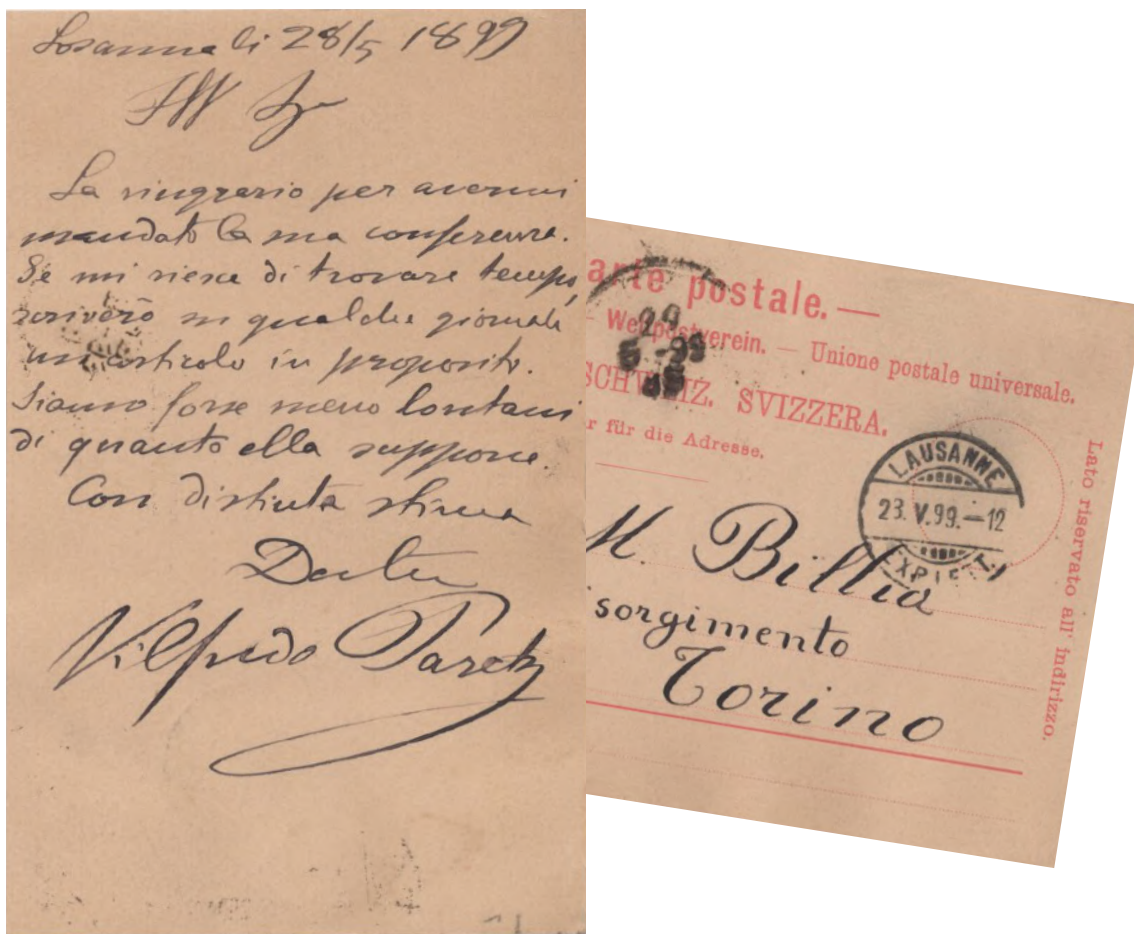 Losanna li 28/5 1899
Ill Sgr
La ringrazio per avermi
mandato la sua conferenza.
Se mi riesce di trovare tempo,
scriverò su qualche giornale
un articolo in proposito.
Siamo forse meno lontani
di quanto ella suppone.
Con distinta stima
Vilfredo Pareto
arte postale. —
Weltpostverein. — Unione postale universale.
SCHWEIZ. SVIZZERA.
r für die Adresse.
Lato riservato all' indirizzo.
29
5-99
LAUSANNE
23. V. 99. — 12
EXP. LETT.
M. Billia
isorgimento
Torino